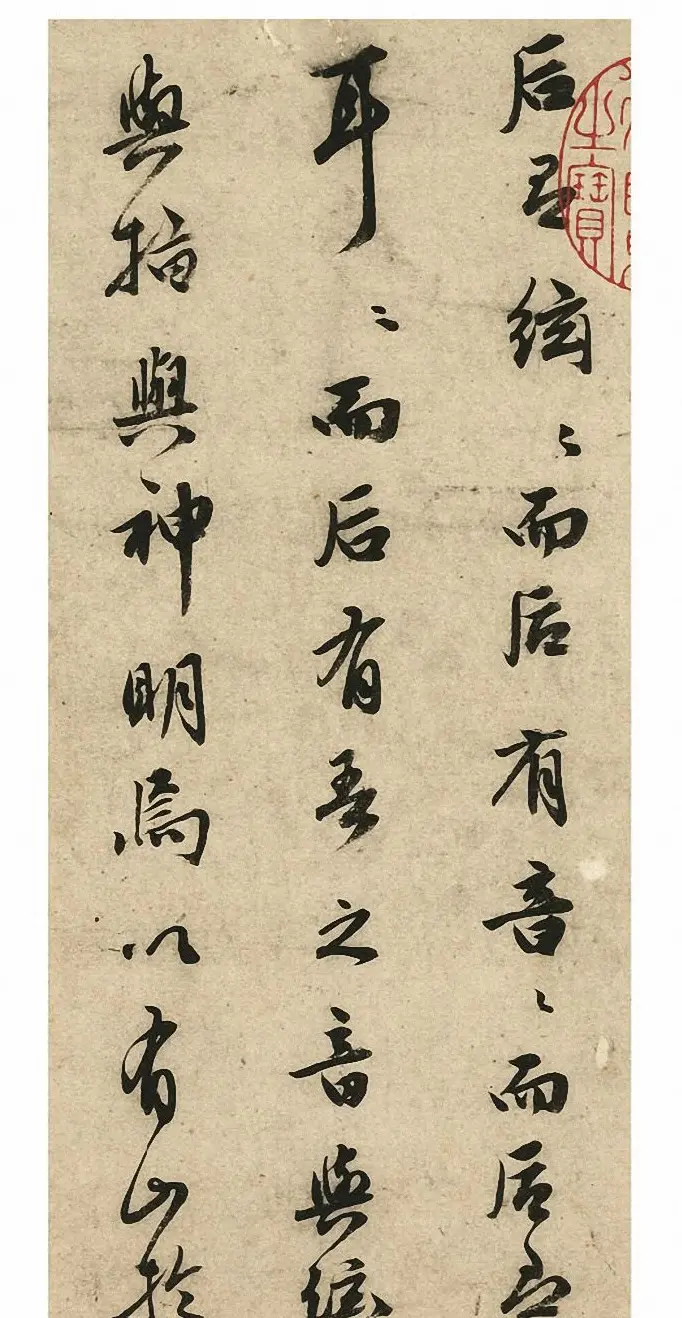 后有絃〻而后有音〻而后有
耳〻而后有吾之音與絃
與指與神明焉以有山於
之寶